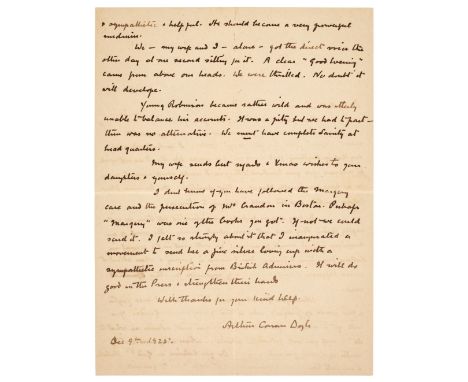 & sympathetic & helpful. He should become a very powerful
medium.
We - my wife and I - alone - got the direct voice the
other day at our second sitting for it. A clear "Good Evening"
came from above our heads. We were thrilled. No doubt it
will develope.
Young Robinson became rather wild and was utterly
unable to balance his accounts. It was a pity but we had to part -
there was no alternative. We must have complete sanity at
head quarters.
My wife sends best regards & Xmas wishes to your
daughters & yourself.
I don't know if you have followed the Margery
case and the persecution of Mrs Crandon in Boston. Perhaps
"Margery" was one of the books you got. If not we could
send it. I felt so strongly about it that I inaugurated a
movement to send her a fine silver loving cup with a
sympathetic inscription from British Admirers. It will do
good in the Press & strengthen their hands
With thanks for your kind help.
Arthur Conan Doyle
Dec 9th 1925.